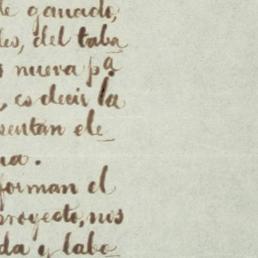 de ganado,
leo, del taba
s nueva pa
, es decir la
sentan ele
na.
forman el
proyecto, nos
da y labo